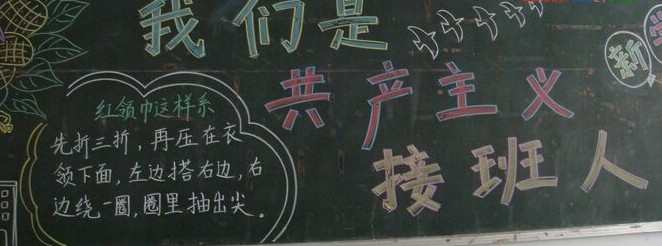 我们是
共产主义
接班人
新
红领巾这样系
先折三折，再压在衣
领下面，左边搭右边，右
边绕一圈，圈里抽出尖。